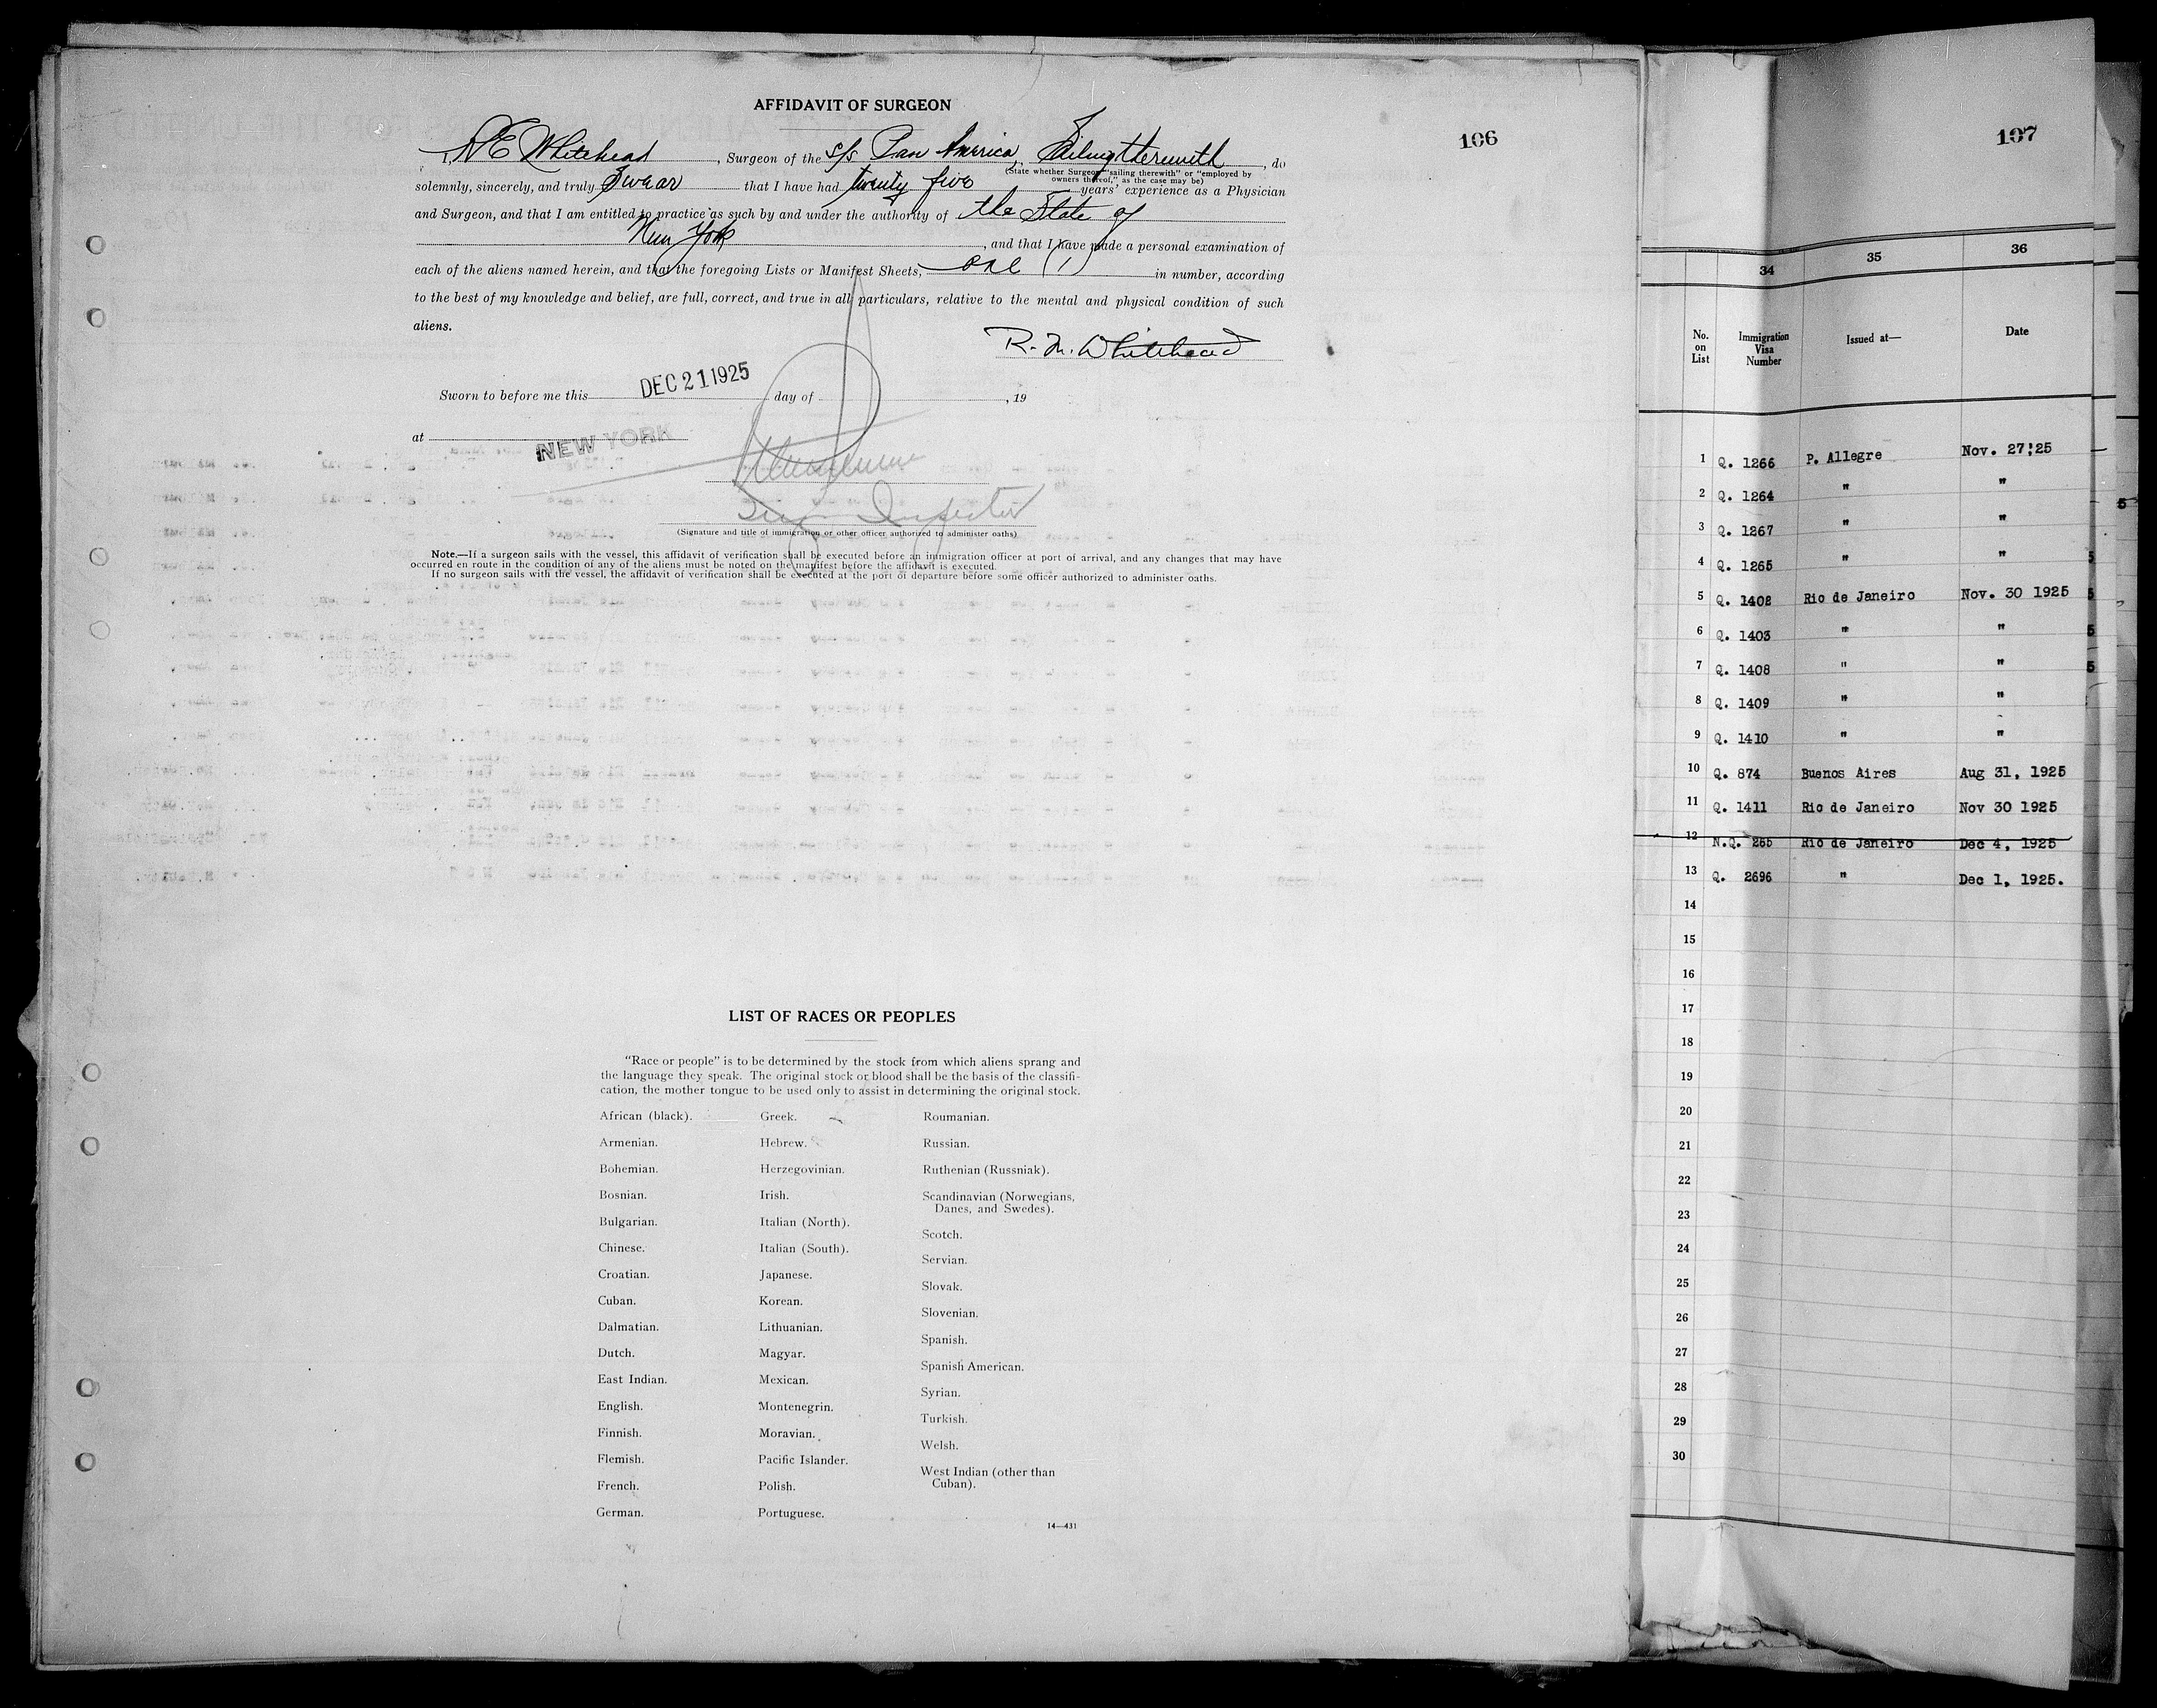 AFFIDAVIT OF SURGEON
106
Whitehead, Surgeon of the S/S Pan America, Sailing therewith, do
(State whether Surgeon "sailing therewith" or "employed by
owners thereof," as the case may be)
solemnly, sincerely, and truly Swear that I have had twenty five years' experience as a Physician
and Surgeon, and that I am entitled to practice as such by and under the authority of the State of
New York, and that I have made a personal examination of
each of the aliens named herein, and that the foregoing Lists or Manifest Sheets, one (1) in number, according
to the best of my knowledge and belief, are full, correct, and true in all particulars, relative to the mental and physical condition of such
aliens.
R. M. Whitehead
Sworn to before me this DEC 21 1925 day of , 19
at NEW YORK
Inspector
(Signature and title of immigration or other officer authorized to administer oaths)
Note.—If a surgeon sails with the vessel, this affidavit of verification shall be executed before an immigration officer at port of arrival, and any changes that may have
occurred en route in the condition of any of the aliens must be noted on the manifest before the affidavit is executed.
If no surgeon sails with the vessel, the affidavit of verification shall be executed at the port of departure before some officer authorized to administer oaths.
LIST OF RACES OR PEOPLES
"Race or people" is to be determined by the stock from which aliens sprang and
the language they speak. The original stock or blood shall be the basis of the classifi-
cation, the mother tongue to be used only to assist in determining the original stock.
African (black).
Armenian.
Bohemian.
Bosnian.
Bulgarian.
Chinese.
Croatian.
Cuban.
Dalmatian.
Dutch.
East Indian.
English.
Finnish.
Flemish.
French.
German.
Greek.
Hebrew.
Herzegovinian.
Irish.
Italian (North).
Italian (South).
Japanese.
Korean.
Lithuanian.
Magyar.
Mexican.
Montenegrin.
Moravian.
Pacific Islander.
Polish.
Portuguese.
Roumanian.
Russian.
Ruthenian (Russniak).
Scandinavian (Norwegians,
Danes, and Swedes).
Scotch.
Servian.
Slovak.
Slovenian.
Spanish.
Spanish American.
Syrian.
Turkish.
Welsh.
West Indian (other than
Cuban).
14—431
107
34 35 36
No. on List Immigration Visa Number Issued at— Date
1 Q. 1266 P. Allegre Nov. 27:25
2 Q. 1264 " "
3 Q. 1267 " "
4 Q. 1265 " "
5 Q. 1402 Rio de Janeiro Nov. 30 1925
6 Q. 1403 " "
7 Q. 1408 " "
8 Q. 1409 " "
9 Q. 1410 " "
10 Q. 874 Buenos Aires Aug 31, 1925
11 Q. 1411 Rio de Janeiro Nov 30 1925
12 N.Q. 265 Rio de Janeiro Dec 4, 1925
13 Q. 2696 " Dec 1, 1925.
14
15
16
17
18
19
20
21
22
23
24
25
26
27
28
29
30